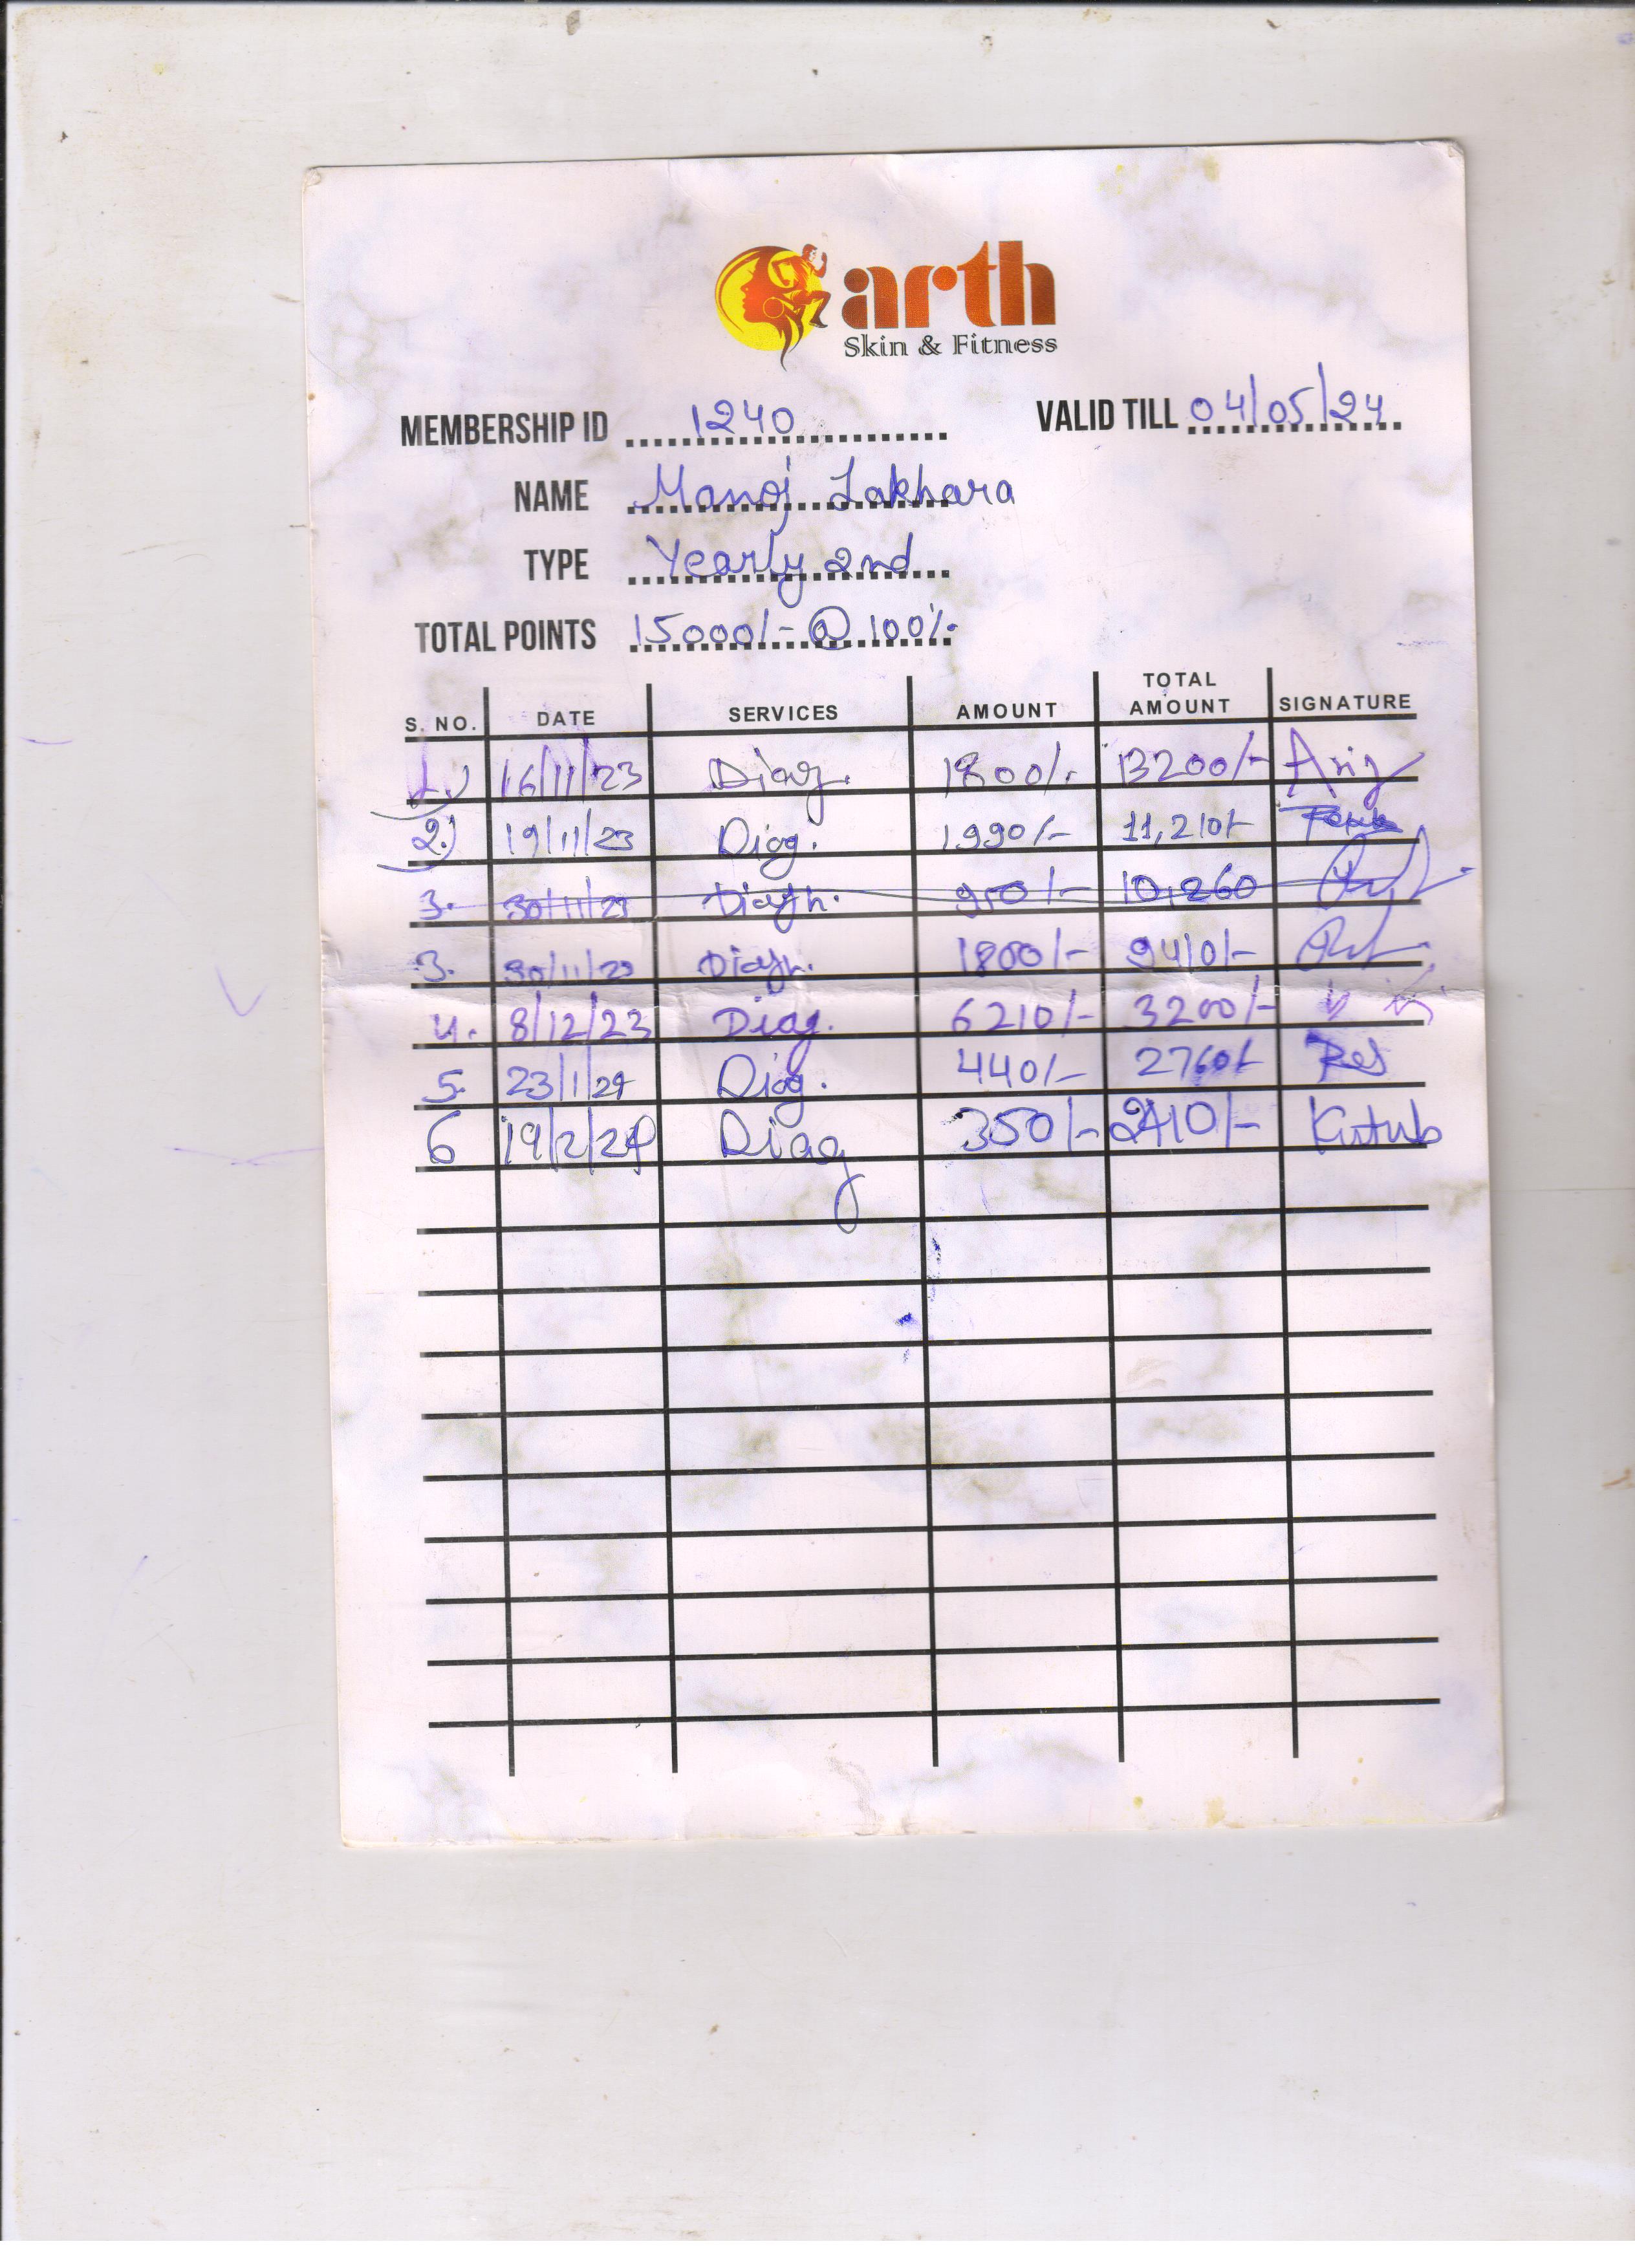 arth
Skin & Fitness
MEMBERSHIP ID 1240 VALID TILL 04/05/24
NAME Manoj Lakhara
TYPE Yearly 2nd
TOTAL POINTS 15000/- @ 100%
S. NO. DATE SERVICES AMOUNT TOTAL AMOUNT SIGNATURE
1.) 16/11/23 Diag. 1800/- 13200/-
2.) 19/11/23 Diag. 1990/- 11,210/-
3. 30/11/23 Diagn. 950/- 10,260
3. 30/11/23 Diagn. 1800/- 9410/-
4. 8/12/23 Diag. 6210/- 3200/-
5. 23/1/24 Diag. 440/- 2760/-
6 19/2/24 Diag 350/- 2410/- Kutub